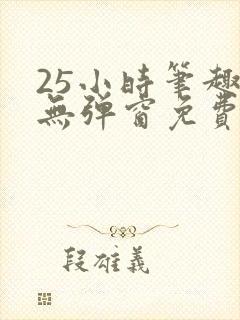 25小時筆趣
無彈窗免費
段雄義